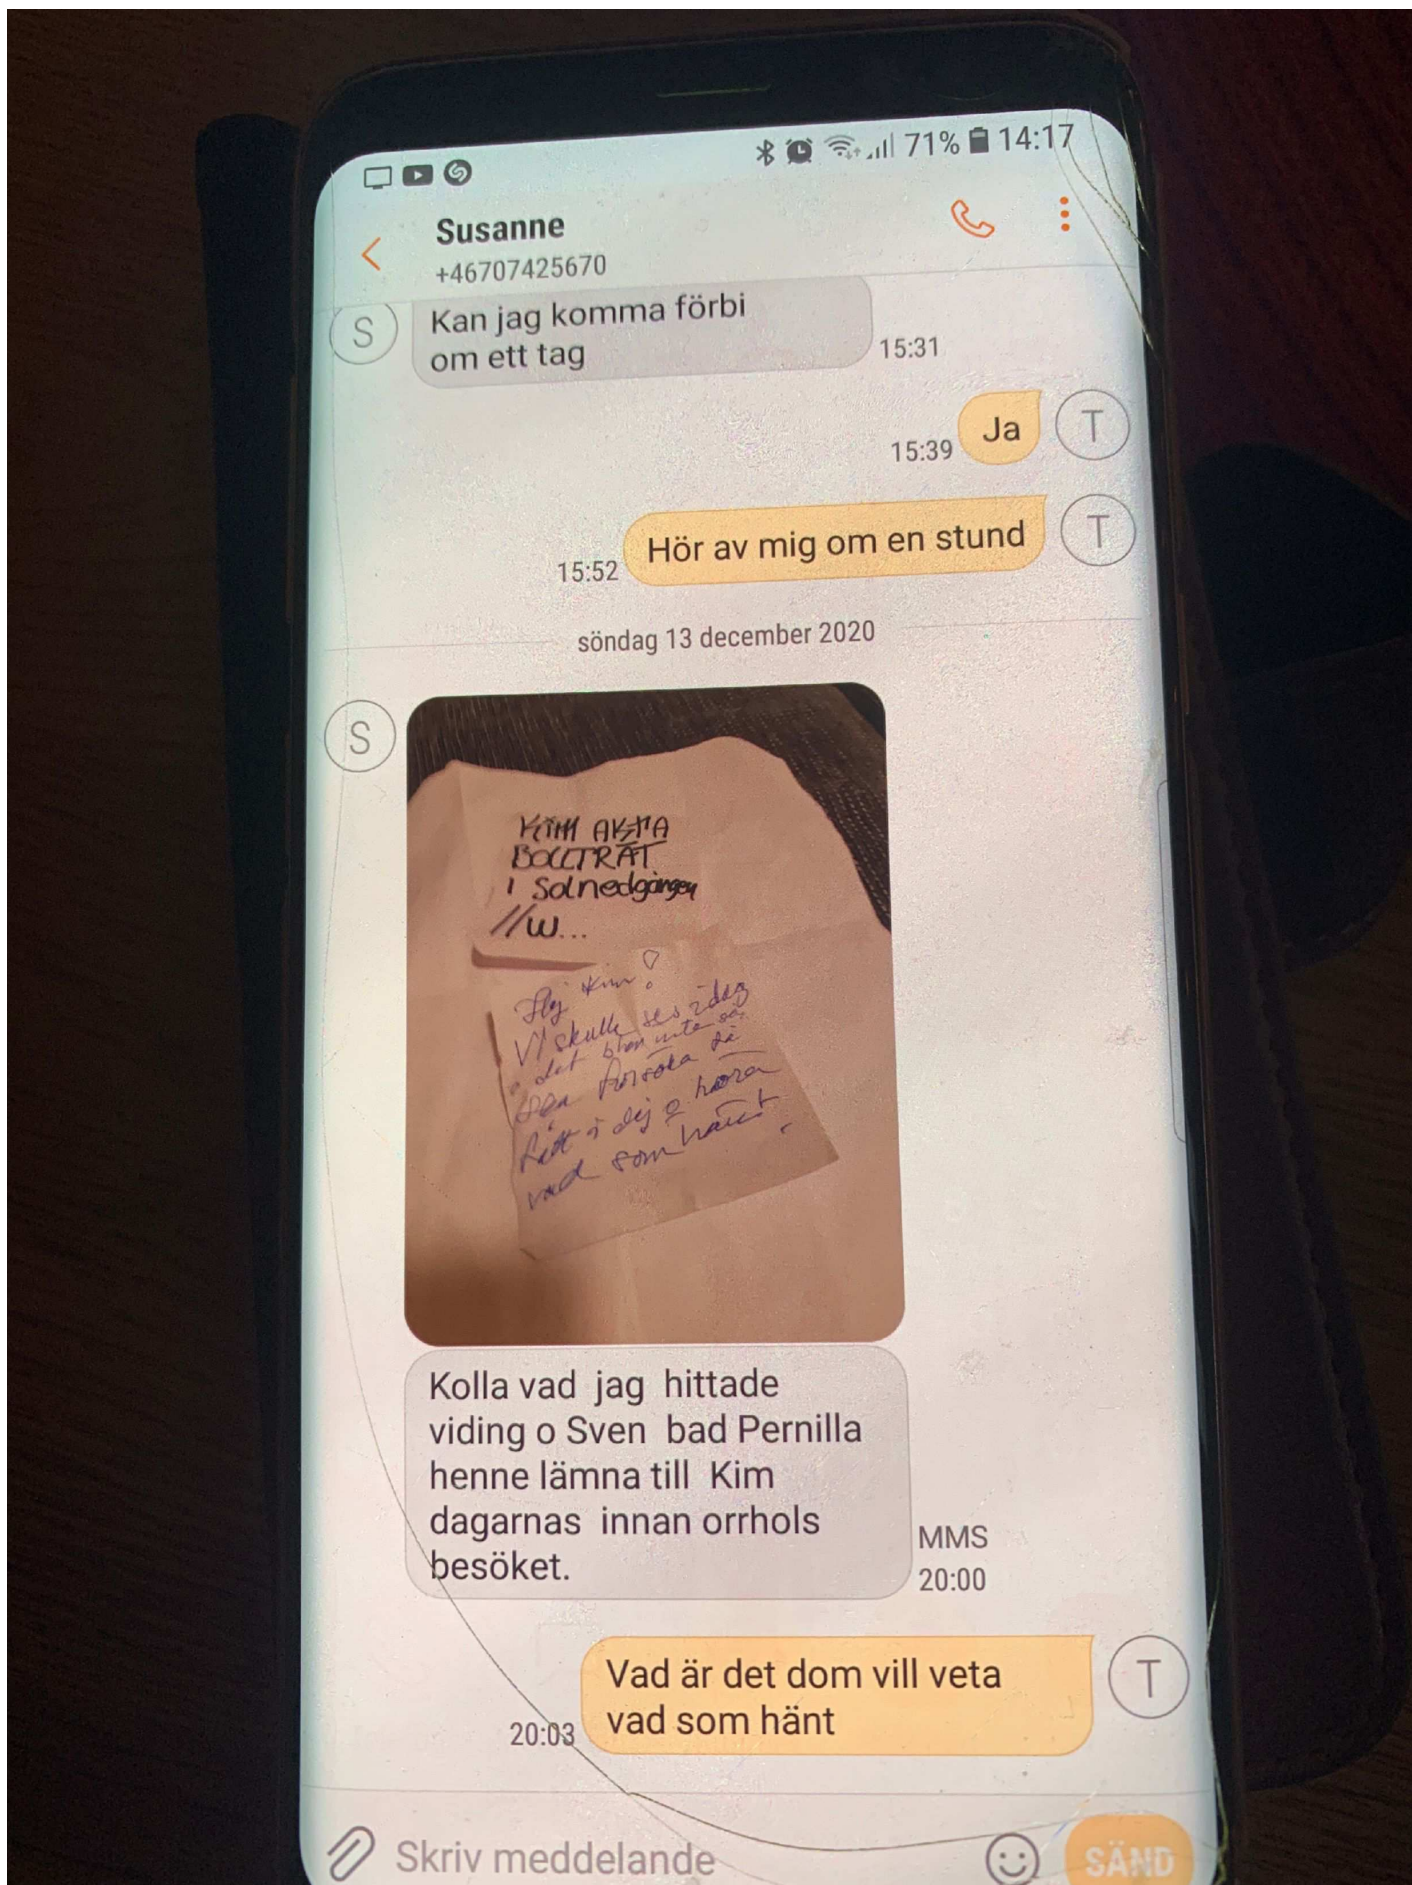 71% 14:17
Susanne
+46707425670
S
Kan jag komma förbi
om ett tag
15:31
Ja
T
15:39
Hör av mig om en stund
T
15:52
söndag 13 december 2020
S
KIM AKTA
BOLLTRÄT
I Solnedgången
//W...
Hej Kim!
Vi skulle ses idag
o det blev inte så.
försöka få
tätt i dig o höra
vad som hänt
Kolla vad jag hittade
viding o Sven bad Pernilla
henne lämna till Kim
dagarnas innan orrhols
besöket.
MMS
20:00
Vad är det dom vill veta
vad som hänt
T
20:03
Skriv meddelande
SÄND